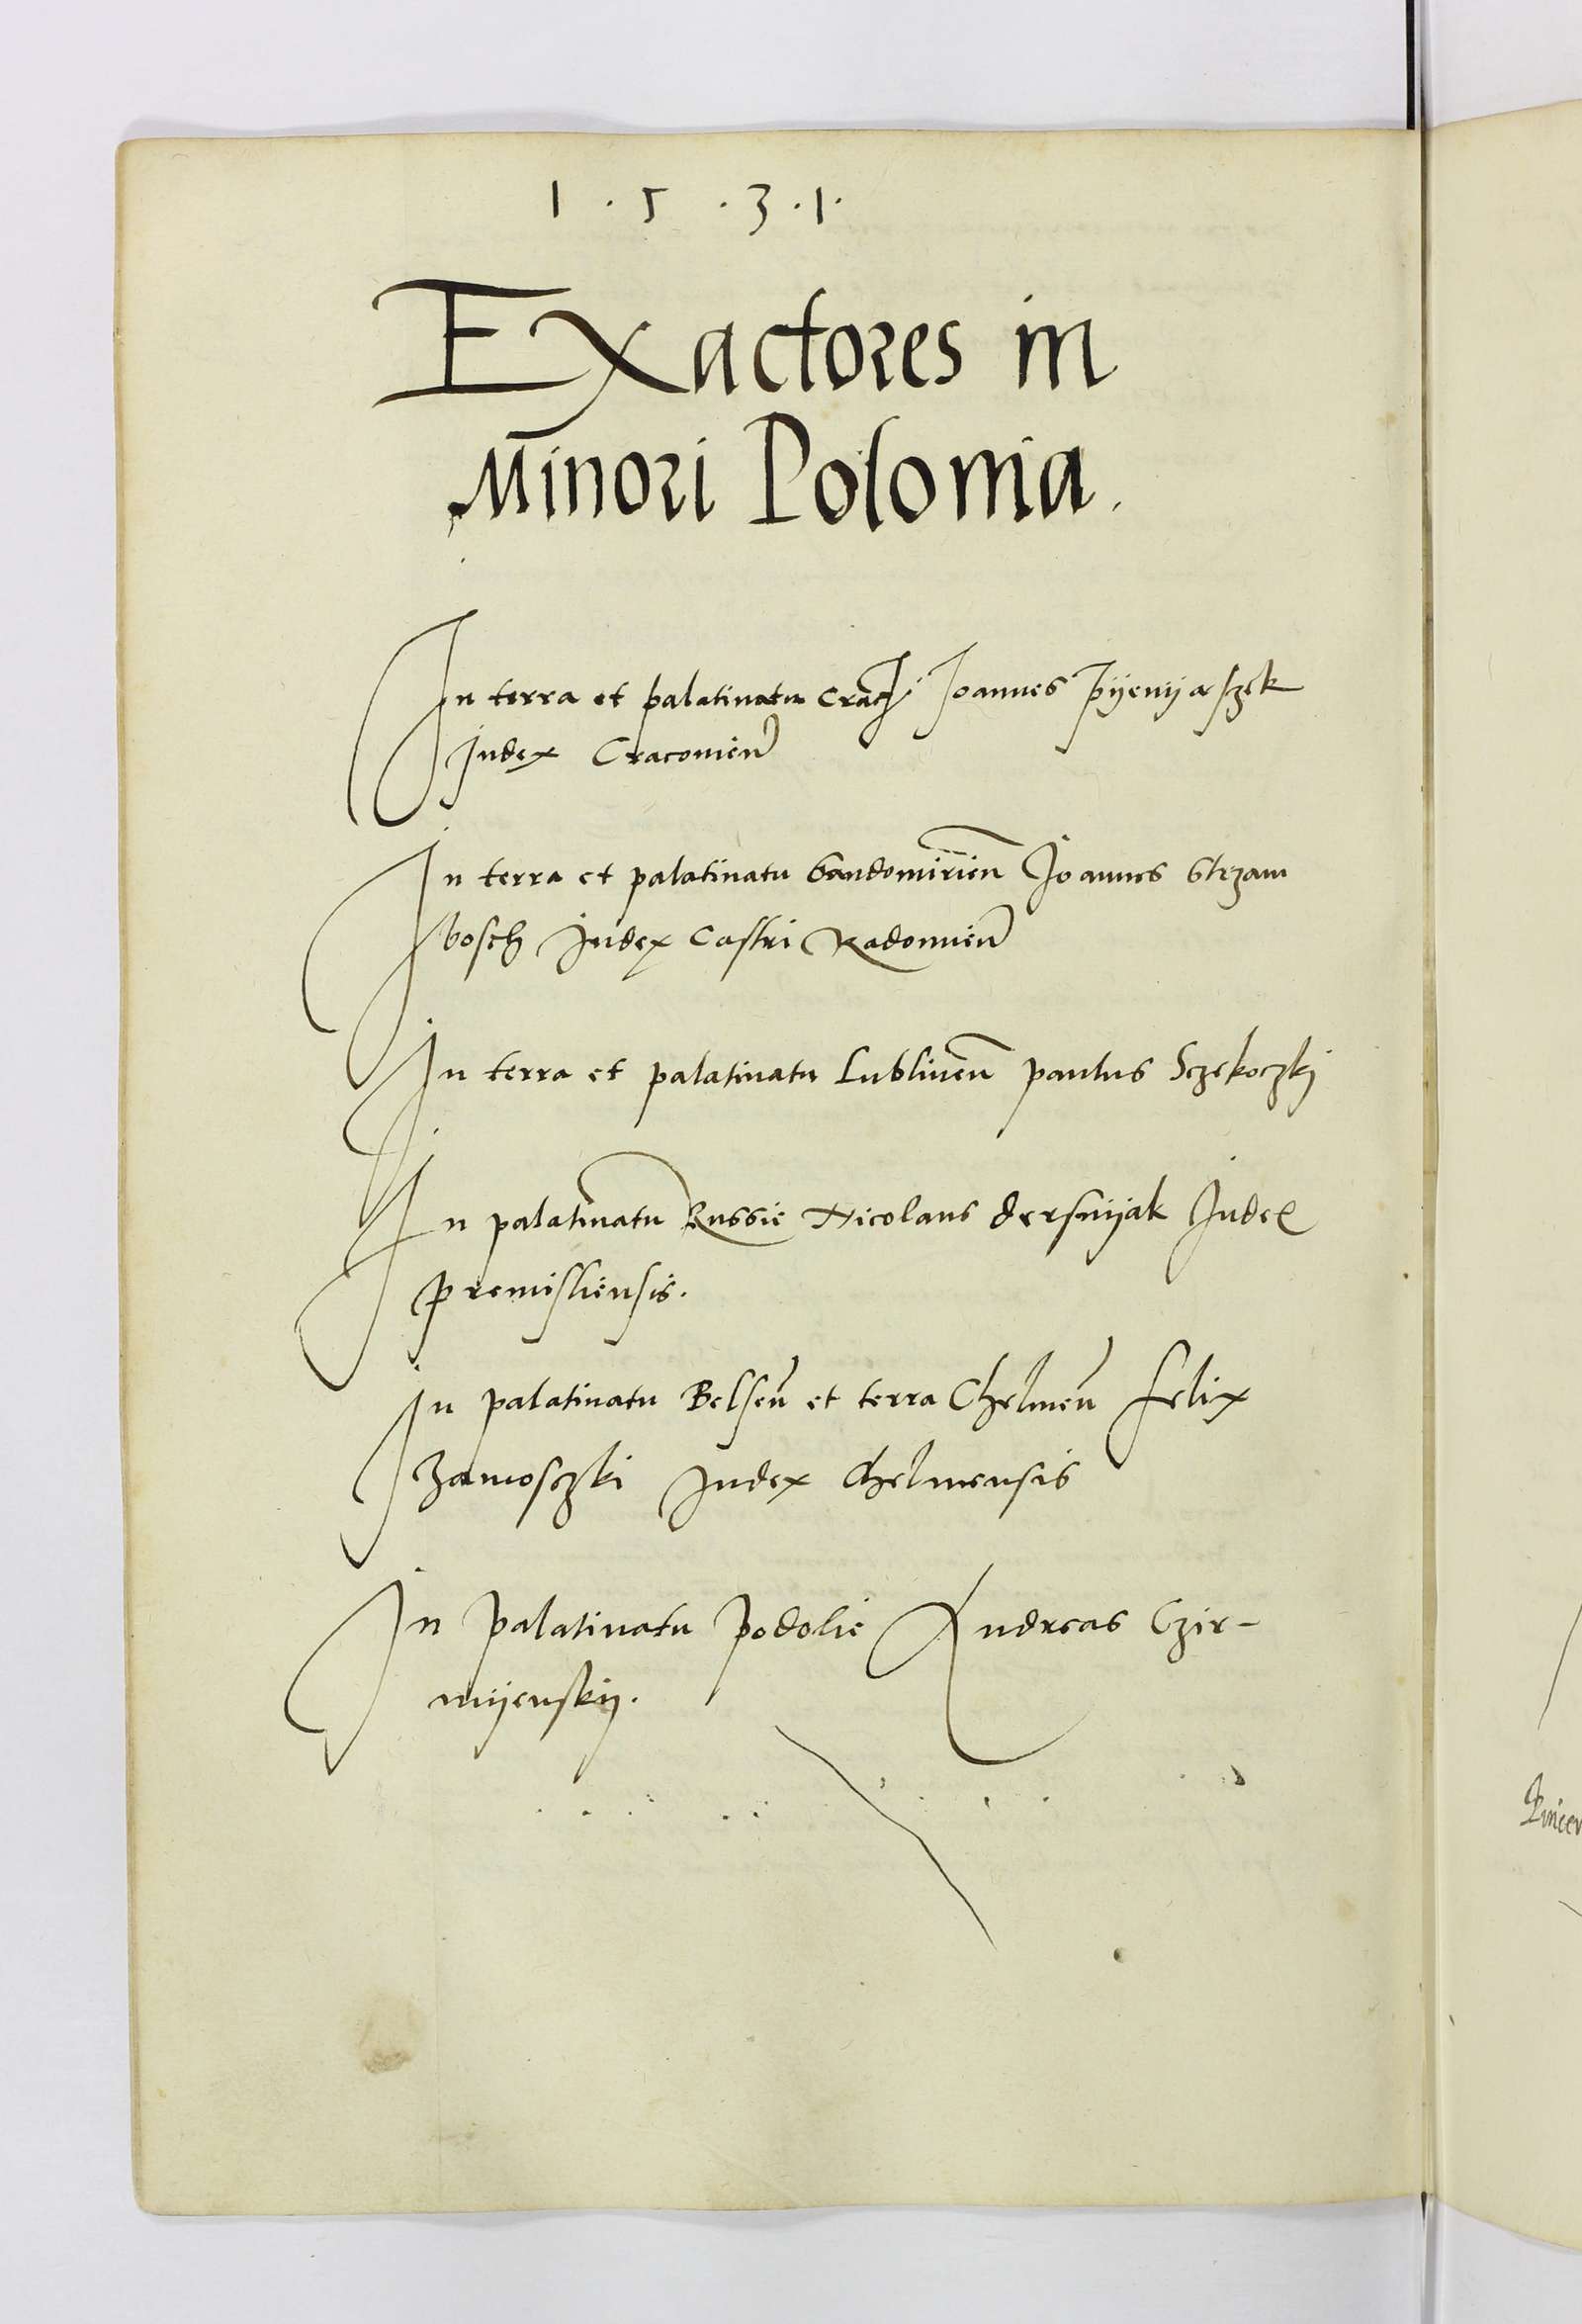 1.5.3.1.
Exactores in
Minori Polonia.
In terra et palatinatu Joannes Pÿenÿaszek
Judex Cracovien
In terra et palatinatu Sandomirien Joannes Strzam
bosch Judex Castri Radomien
In terra et palatinatu Lublinen paulus Sczekoczki
In palatinatu Russie Nicolaus dersnÿak Judex
premisliensis.
In palatinatu Belsen et terra Chelmen felix
Zamosczki Judex Chelmensis
In palatinatu podolie Andreas Czir-
mÿenskÿ.